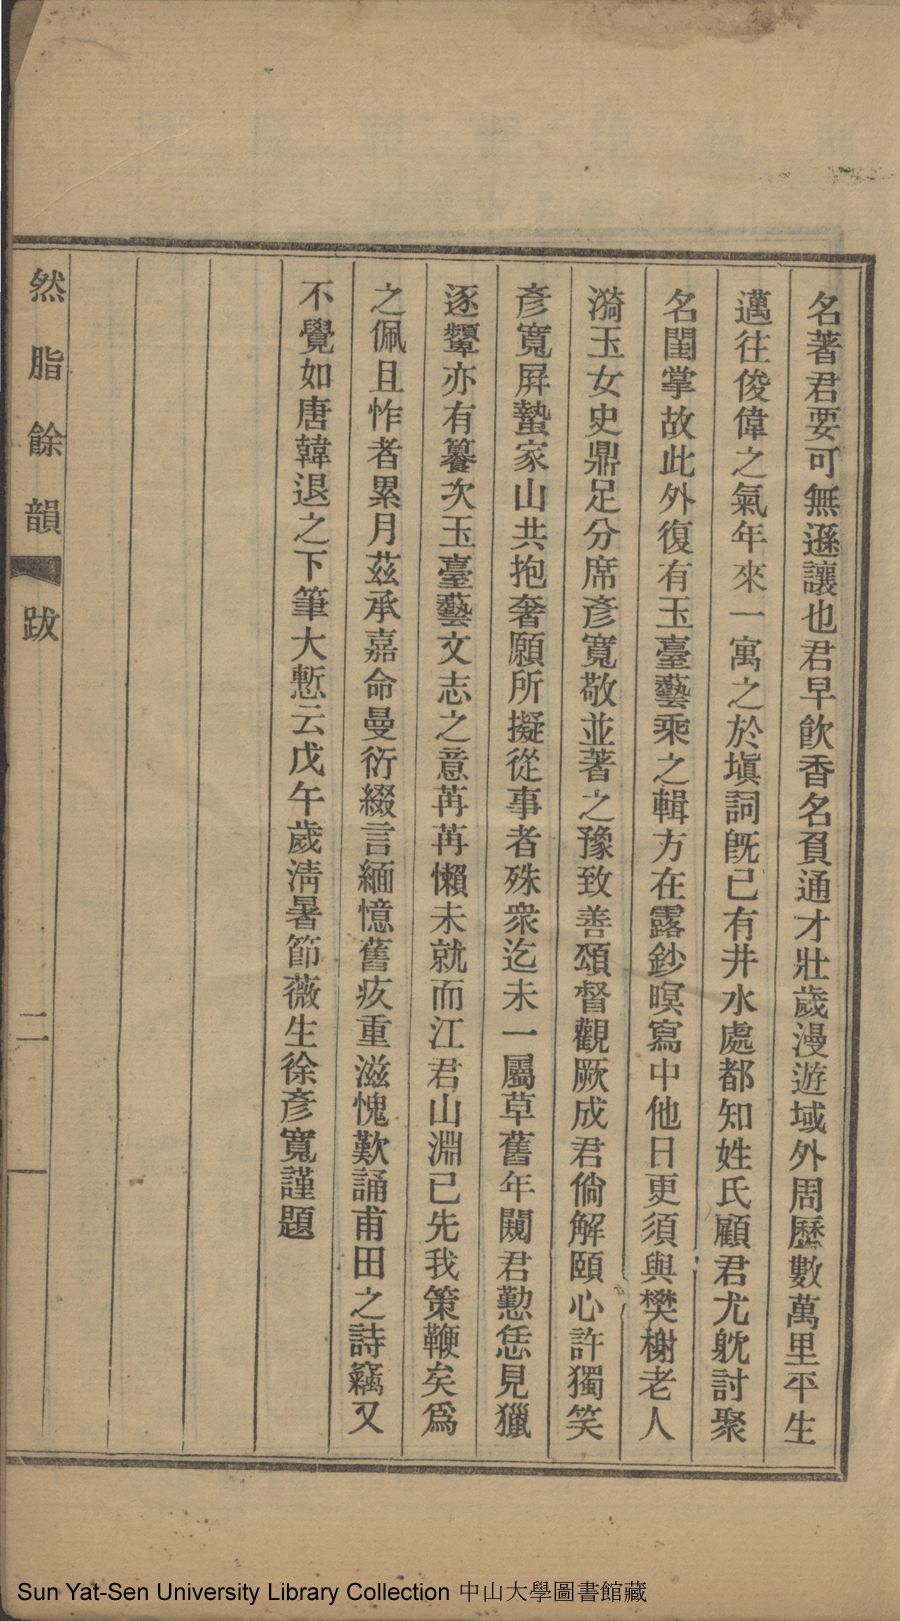 名著君要可無遜讓也君早飮香名負通才壯歲漫遊域外周歷數萬里平生
邁往俊偉之氣年來一寓之於塡詞旣已有井水處都知姓氏顧君尤躭討聚
名閨掌故此外復有玉臺藝乘之輯方在露鈔暝寫中他日更須與樊榭老人
漪玉女史鼎足分席彥寬敬並著之豫致善頌督觀厥成君倘解頤心許獨笑
彥寬屛蟄家山共抱奢願所擬從事者殊衆迄未一屬草舊年闋君懃恁見獵
逐顰亦有纂次玉臺藝文志之意苒苒懶未就而江君山淵已先我策鞭矣爲
之佩且怍者累月茲承嘉命曼衍綴言緬憶舊疚重滋愧歎誦甫田之詩竊又
不覺如唐韓退之下筆大慙云戊午歲淸暑節薇生徐彥寬謹題
然脂餘韻 跋 二
Sun Yat-Sen University Library Collection 中山大學圖書館藏